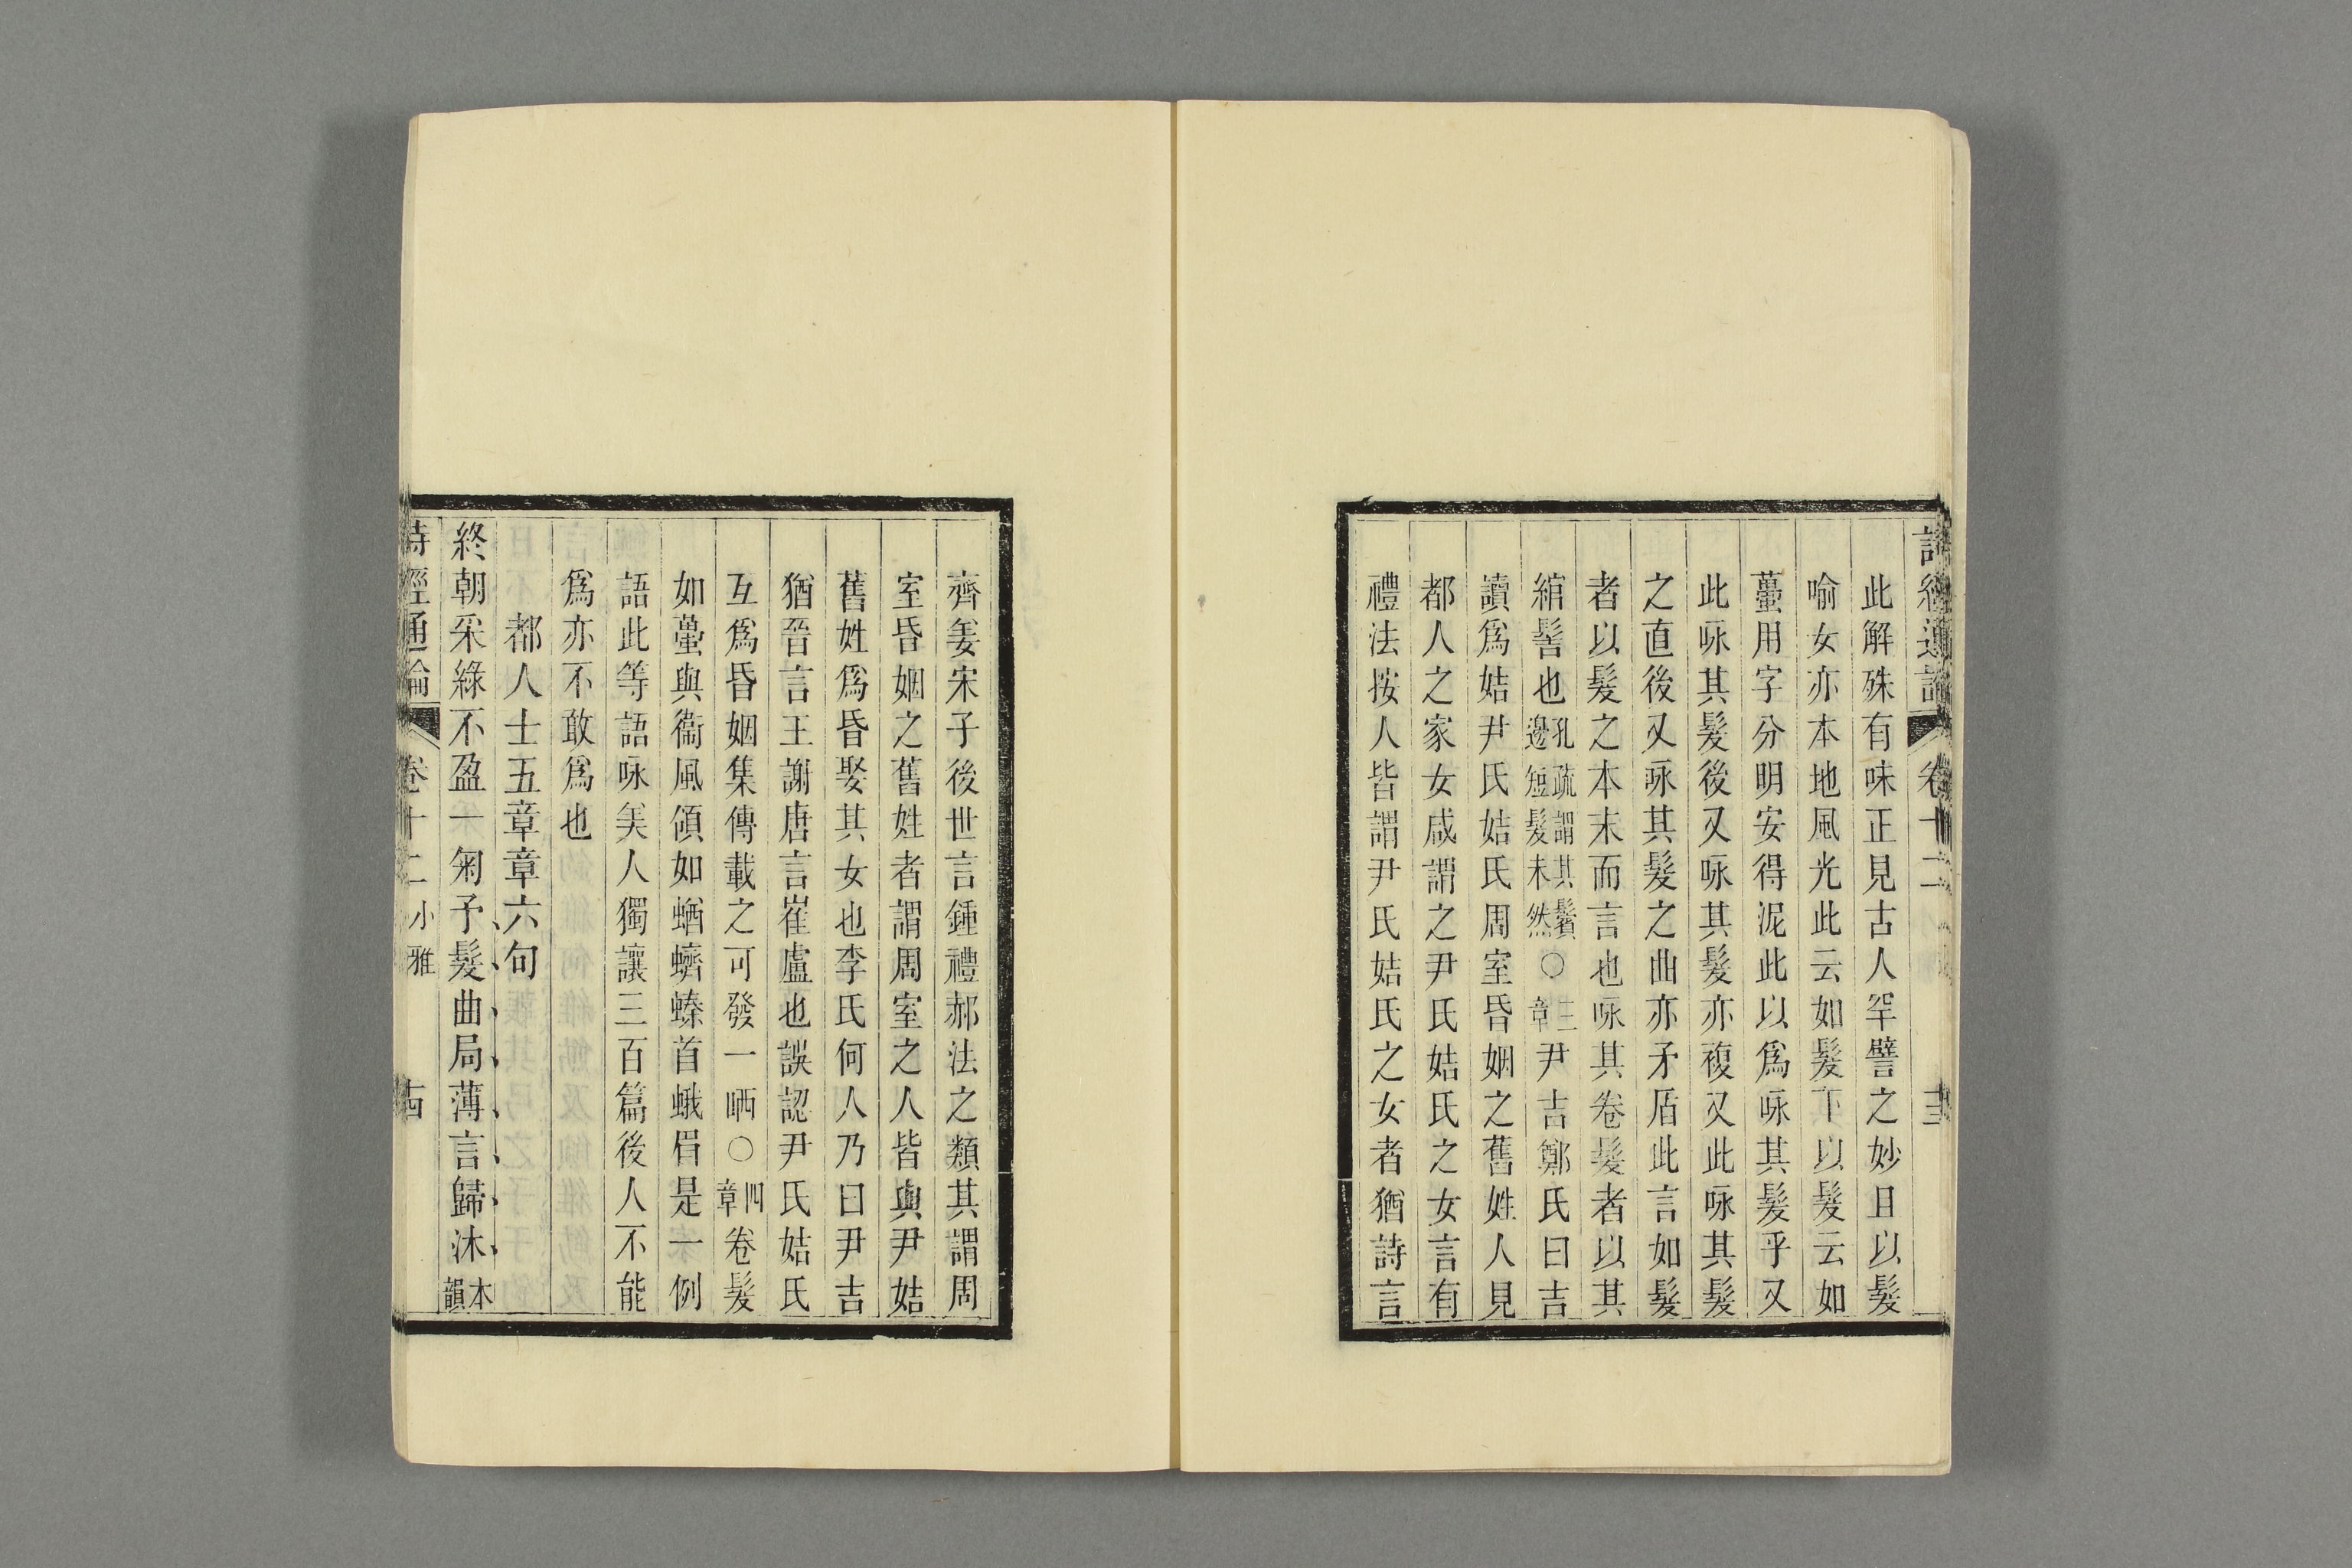 詩經通論 卷十二 十三
此解殊有味正見古人罕譬之妙且以髮
喻女亦本地風光此云如髮下以髮云如
蠆用字分明安得泥此以爲咏其髮乎又
此咏其髮後又咏其髮亦複又此咏其髮
之直後又咏其髮之曲亦矛盾此言如髮
者以髮之本末而言也咏其卷髮者以其
綰髻也孔疏謂其鬢邊短髮未然○三章尹吉鄭氏曰吉
讀爲姞尹氏姞氏周室昏姻之舊姓人見
都人之家女咸謂之尹氏姞氏之女言有
禮法按人皆謂尹氏姞氏之女者猶詩言
齊姜宋子後世言鍾禮郝法之類其謂周
室昏姻之舊姓者謂周室之人皆與尹姞
舊姓爲昏娶其女也李氏何人乃曰尹吉
猶晉言王謝唐言崔盧也誤認尹氏姞氏
互爲昏姻集傳載之可發一哂○四章卷髮
如蠆與衞風領如蝤蠐螓首蛾眉是一例
語此等語咏美人獨讓三百篇後人不能
爲亦不敢爲也
都人士五章章六句
終朝采綠不盈一匊予髮曲局薄言歸沐本韻
詩經通論 卷十二 小雅 十四